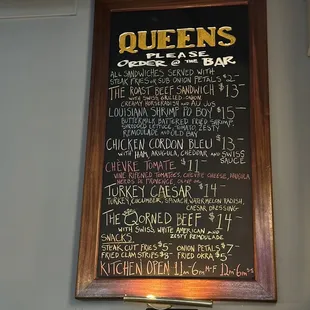 QUEENS
PLEASE
ORDER @ THE BAR
ALL SANDWICHES SERVED WITH
STEAK FRIES OR SUB ONION PETALS $2
THE ROAST BEEF SANDWICH $13
WITH SWISS GRILLED ONION
CREAMY HORSERADISH AND AU JUS
LOUISIANA SHRIMP PO BOY $15
BUTTERMILK BATTERED FRIED SHRIMP
SHREDDED LETTUCE TOMATO ZESTY
REMOULADE AND OLD BAY
CHICKEN CORDON BLEU $13
WITH HAM, ARUGULA, CHEDDAR AND SWISS
SAUCE
CHEVRE TOMATE $11
VINE RIPENED TOMATOES, CHEVRE CHEESE, ARUGULA
HERBS DE PROVENCE, OLIVE OIL
TURKEY CAESAR $14
TURKEY, CUCUMBER, SPINACH, WATERMELON RADISH,
CAESAR DRESSING
THE QORNED BEEF $14
WITH SWISS WHITE AMERICAN AND
ZESTY REMOULADE
SNACKS
STEAK CUT FRIES $5 ONION PETALS $7
FRIED CLAM STRIPS $8 FRIED OKRA $5
KITCHEN OPEN 11AM-6PM M-F 12PM-6PM